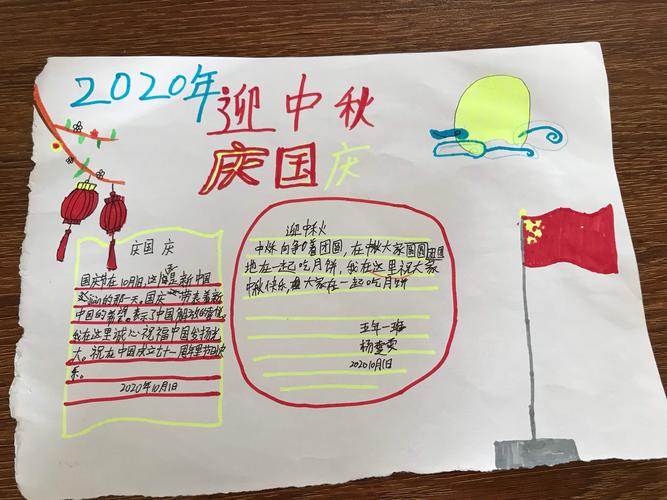 2020年
迎中秋
庆国庆
庆国庆
国庆节在10月1日这是新中国
的那一天。国庆带表着新
中国的希望。表示了中国解放的喜悦
我在这里诚心祝福中国发扬光
大。祝在中国成立七十一周年里节日快
乐。
2020年10月1日
迎中秋
中秋向争着团圆，在中秋大家团圆团团
地在一起吃月饼，我在这里祝大家
中秋快乐，大家在一起吃月饼
五年一班
杨雯
202010月1日